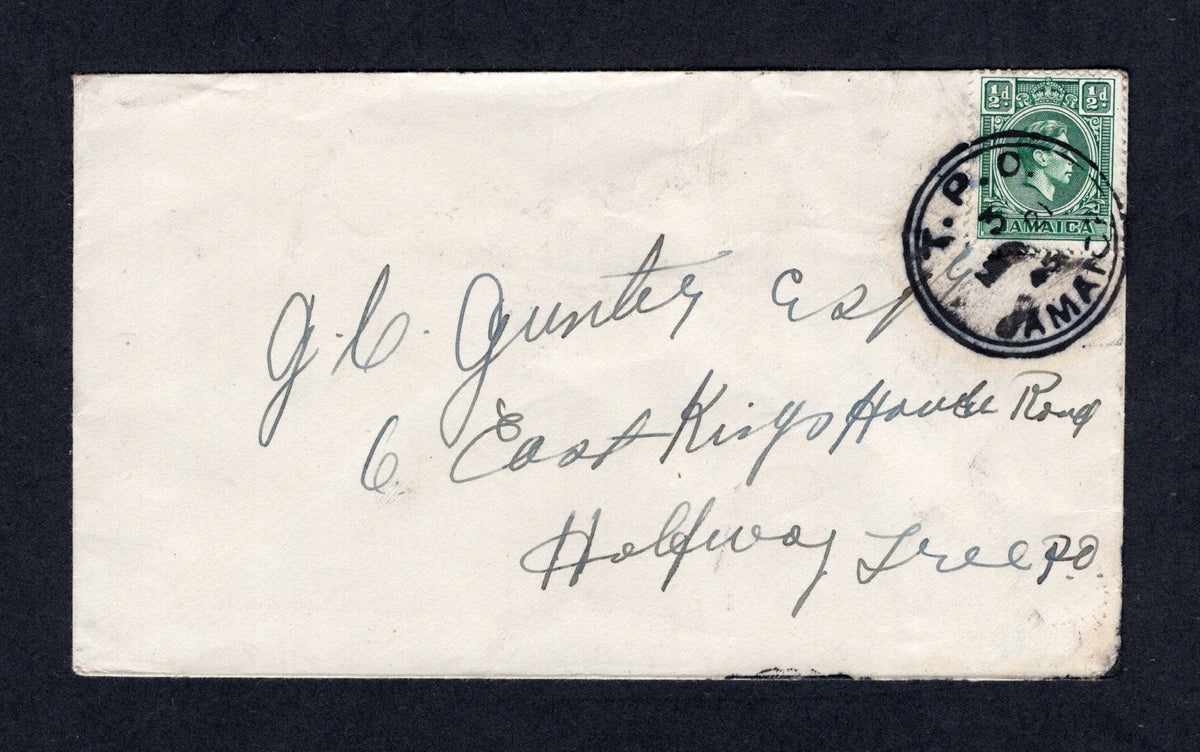 ½d. ½d.
JAMAICA
T.P.O.
JAMAICA
G.C. Gunter Esq
6 East Kings House Road
Halfway Tree P.O.